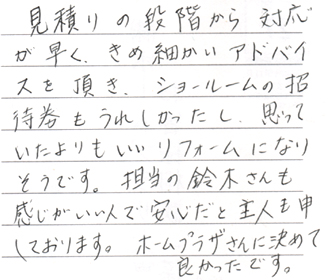 見積りの段階から対応
が早く、きめ細かいアドバイ
スを頂き、ショールームの招
待券もうれしかったし、思って
いたよりもいいリフォームになり
そうです。担当の鈴木さんも
感じがいい人で安心だと主人も申
しております。ホームプラザさんに決めて
良かったです。